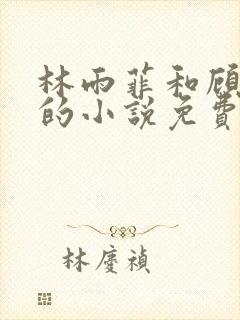 林雨菲和顾
的小說免費
林慶禎